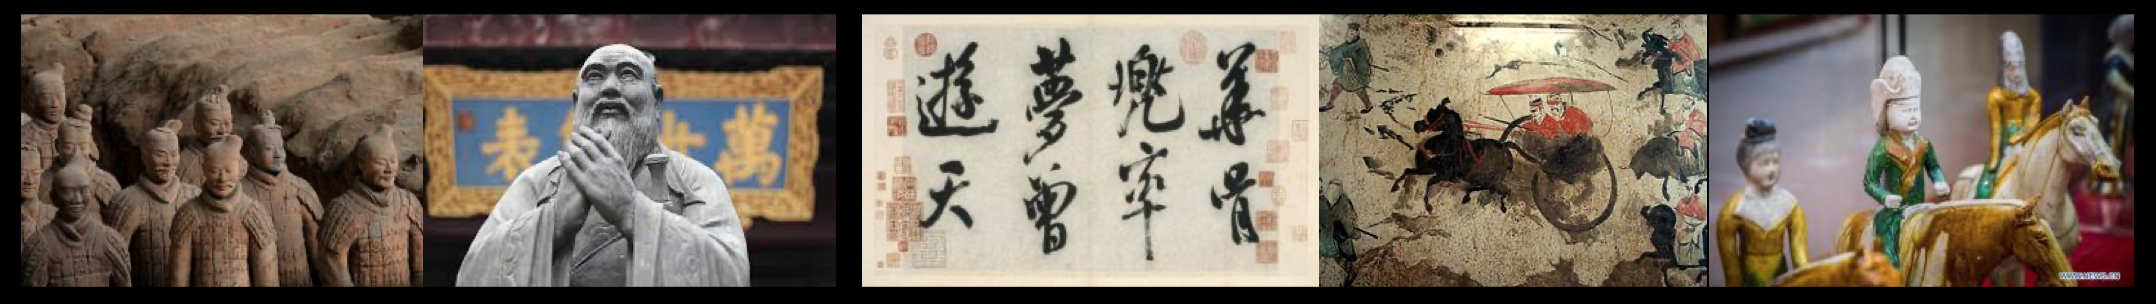 萬世表
華胥
兜率
夢曾
遊天
WWW.NEWS.CN